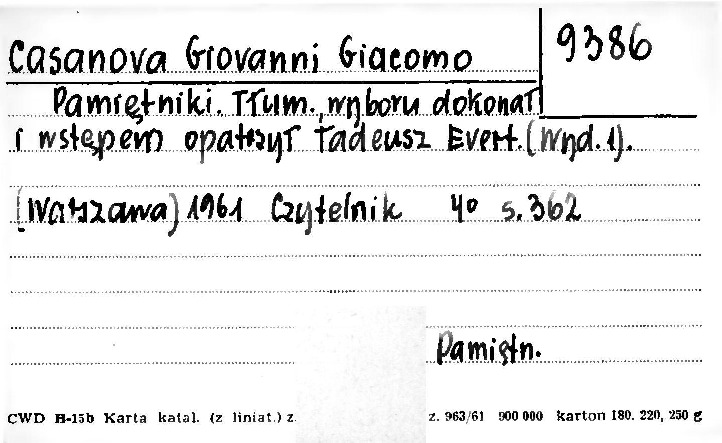 Casanova Giovanni Giacomo
9386
Pamiętniki. Tłum., wyboru dokonał
i wstępem opatrzył Tadeusz Evert. (Wyd. 1).
[Warszawa] 1961 Czytelnik 4° s. 362
Pamiętn.
CWD H-15b Karta katal. (z liniat.) z. z. 963/61 900 000 karton 180. 220, 250 g